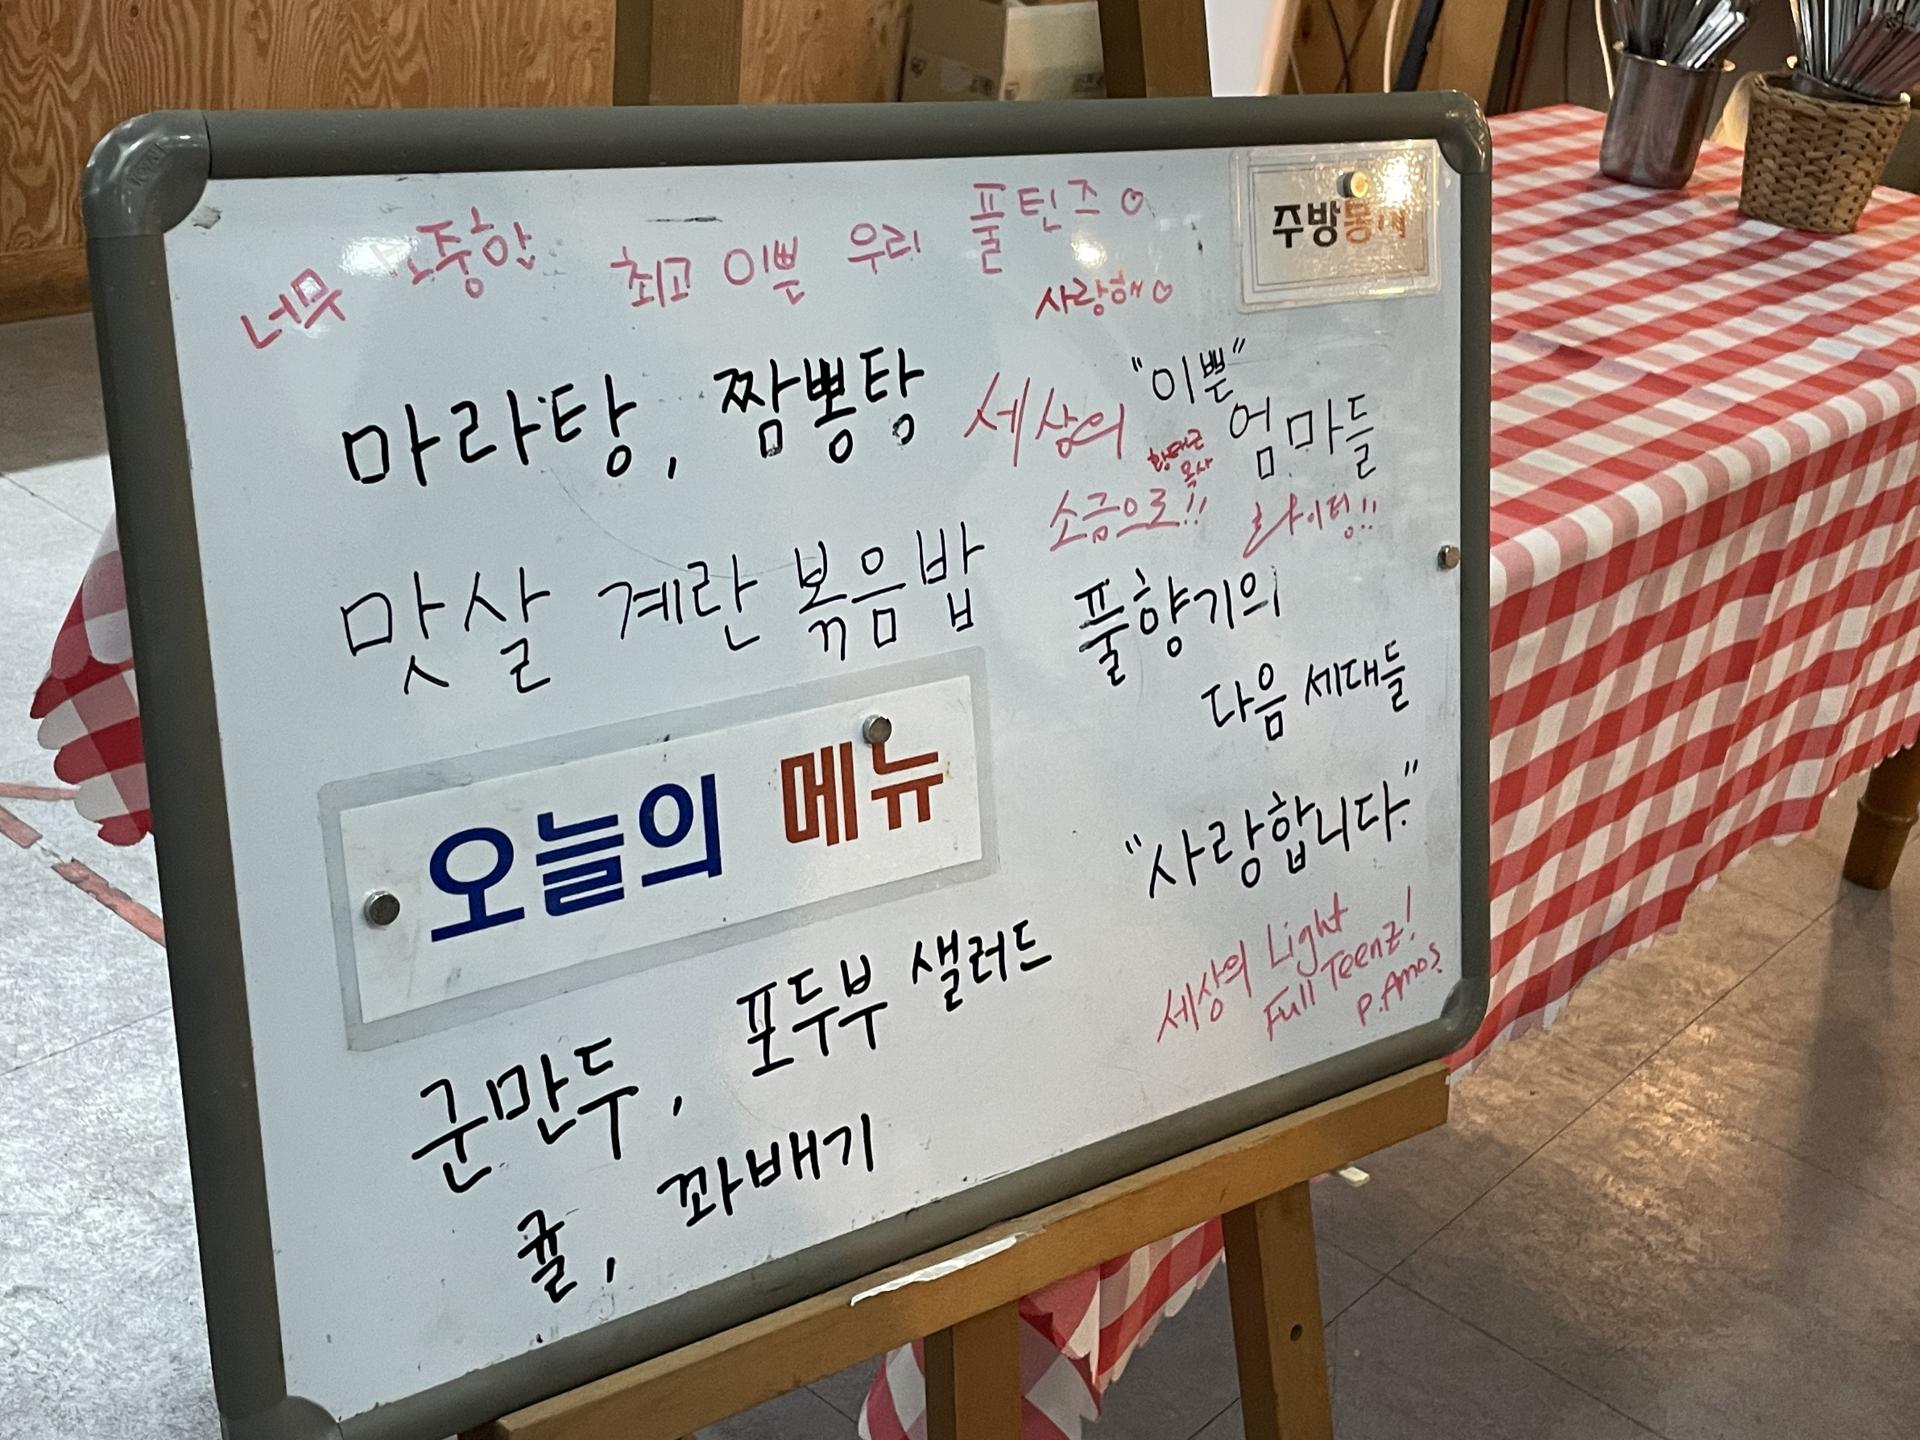 너무 소중한 최고 이쁜 우리 풀틴즈♡
사랑해♡
주방
마라탕, 짬뽕탕
맛살 계란 볶음밥
오늘의 메뉴
군만두, 포두부 샐러드
귤, 꽈배기
세상의
소금으로!!
목사
"이쁜"
엄마들
화이팅!!
풀향기의
다음 세대들
"사랑합니다."
세상의 Light
Full Teenz!
P.Amos.